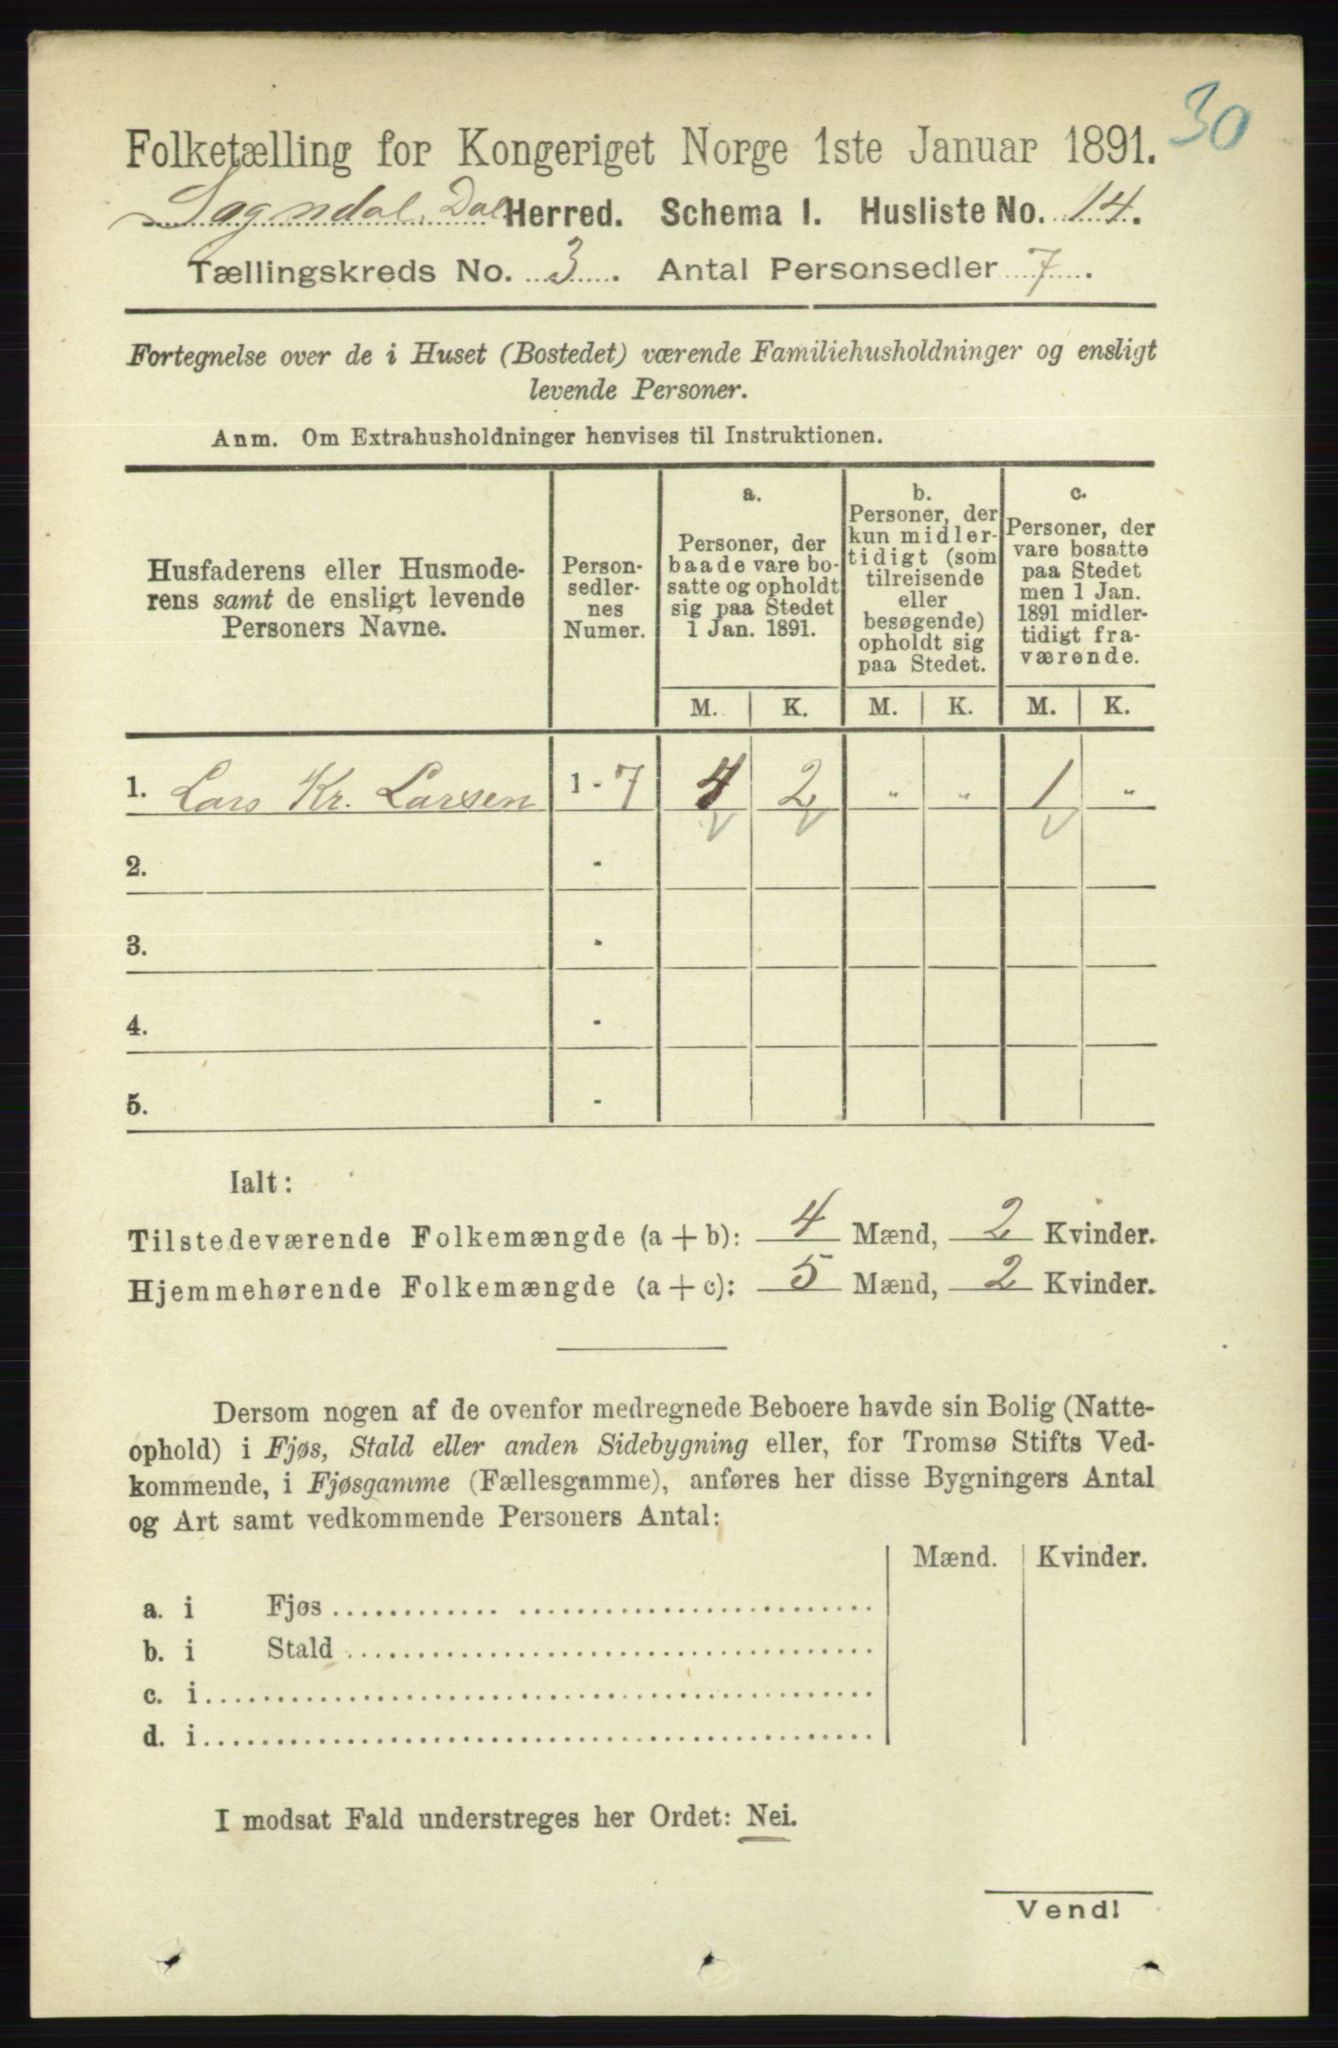 30
Folketælling for Kongeriget Norge 1ste Januar 1891.
Sogndal, Dal Herred. Schema I. Husliste No. 14.
Tællingskreds No. 3. Antal Personsedler 7.
Fortegnelse over de i Huset (Bostedet) værende Familiehusholdninger og ensligt
levende Personer.
Anm. Om Extrahusholdninger henvises til Instruktionen.
Husfaderens eller Husmode-
rens samt de ensligt levende
Personers Navne.
Person-
sedler-
nes
Numer.
a.
Personer, der
baade vare bo-
satte og opholdt
sig paa Stedet
1 Jan. 1891.
b.
Personer, der
kun midler-
tidigt (som
tilreisende
eller
besøgende)
opholdt sig
paa Stedet.
c.
Personer, der
vare bosatte
paa Stedet
men 1 Jan.
1891 midler-
tidigt fra-
værende.
M. K. M. K. M. K.
1. Lars Kr. Larsen 1 - 7 4 2 " " 1 "
2. -
3. -
4. -
5. -
Ialt:
Tilstedeværende Folkemængde (a + b): 4 Mænd, 2 Kvinder.
Hjemmehørende Folkemængde (a + c): 5 Mænd, 2 Kvinder.
Dersom nogen af de ovenfor medregnede Beboere havde sin Bolig (Natte-
ophold) i Fjøs, Stald eller anden Sidebygning eller, for Tromsø Stifts Ved-
kommende, i Fjøsgamme (Fællesgamme), anføres her disse Bygningers Antal
og Art samt vedkommende Personers Antal:
Mænd. Kvinder.
a. i Fjøs
b. i Stald
c. i
d. i
I modsat Fald understreges her Ordet: Nei.
Vend!